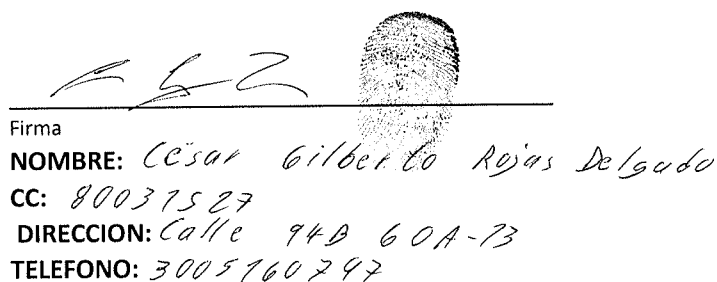 Firma
NOMBRE: César Gilberto Rojas Delgado
CC: 80037527
DIRECCION: Calle 94B 60A-73
TELEFONO: 3005760797